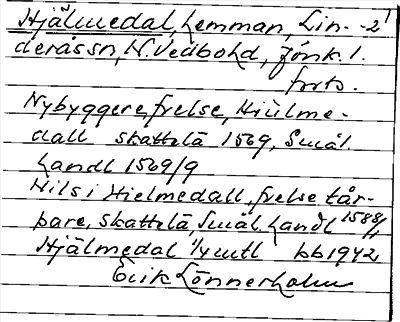 Hjälmedal, hemman, Lin- -2
deråssn, N. Vedbohd, Jönk. l.
forts.
Nybyggere, frelse, Hiulme-
dall skattelä 1569, Smål.
handl 1569/9
Nils i Hielmedall, frelse tår-
pare, skattelä, Smål. handl 1588/1
Hjälmedal 1/4 mtl bb 1942
Erik Lönnerholm